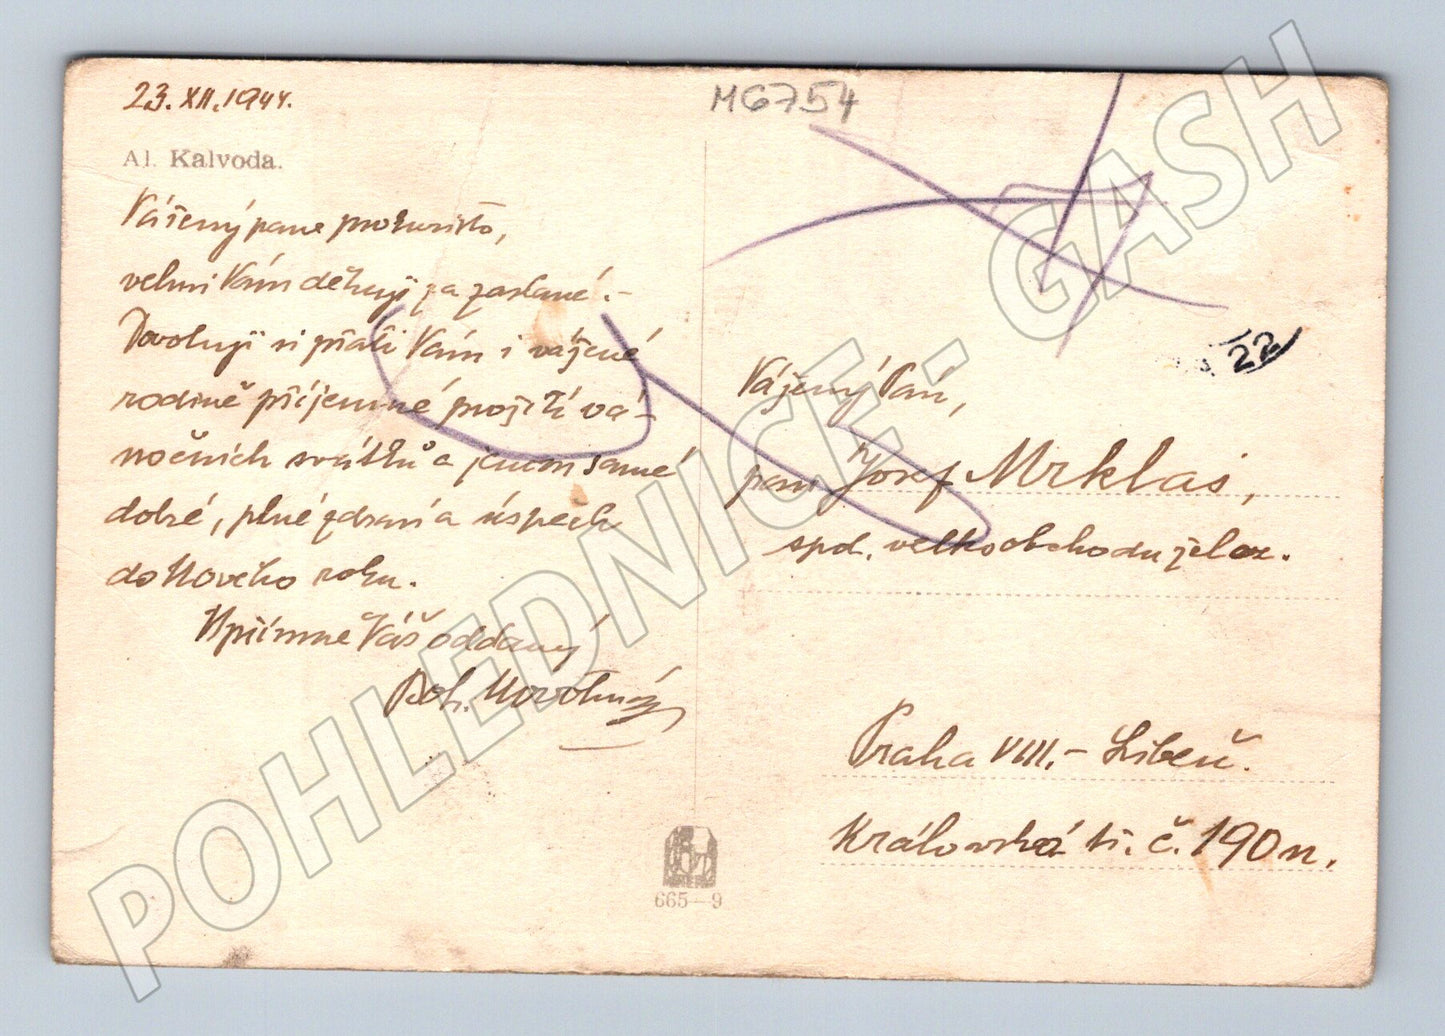 23. XII. 1944.
M6754
Al. Kalvoda.
Vážený pane prokuristo,
velmi Vám děkuji za zaslané.-
Dovoluji si přáti Vám i vážené
rodině příjemné prožití vá-
nočních svátků a jenom samé
dobré, plné zdraví a úspěch
do Nového roku.
Upřímně Váš oddaný
Boh. Novotný
22
Vážený Pan,
pan Josef Mrklas,
spol. velkoobchodu želez.
Praha VIII. - Libeň.
Královská tř. č. 190 n.
665-9
POHLEDNICE - GASH